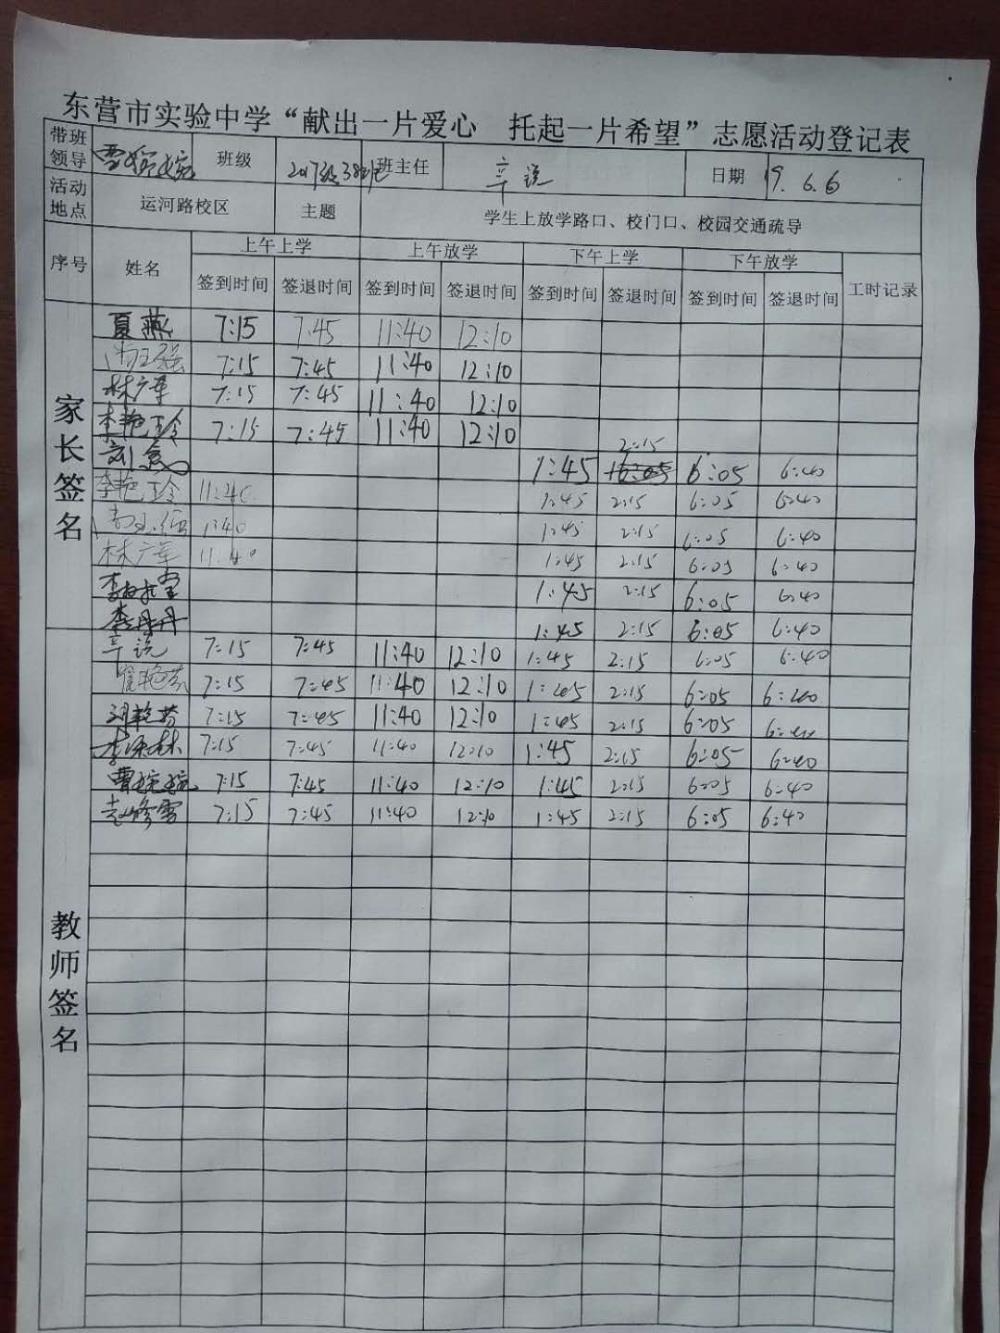 东营市实验中学“献出一片爱心 托起一片希望”志愿活动登记表
带班领导 曹婉婉 班级 2017级38班 班主任 辛锐 日期 19.6.6
活动地点 运河路校区 主题 学生上放学路口、校门口、校园交通疏导
序号 姓名 上午上学 上午放学 下午上学 下午放学 工时记录
签到时间 签退时间 签到时间 签退时间 签到时间 签退时间 签到时间 签退时间
家长签名
夏燕 7:15 7:45 11:40 12:10
7:15 7:45 11:40 12:10
林广军 7:15 7:45 11:40 12:10
李艳玲 7:15 7:45 11:40 12:10
2:15
1:45 6:05 6:40
李艳玲 11:40 1:45 2:15 6:05 6:40
1:40 1:45 2:15 6:05 6:40
林广军 11:40 1:45 2:15 6:05 6:40
1:45 2:15 6:05 6:40
李丹丹 1:45 2:15 6:05 6:40
教师签名
辛锐 7:15 7:45 11:40 12:10 1:45 2:15 6:05 6:40
7:15 7:45 11:40 12:10 1:45 2:15 6:05 6:40
7:15 7:45 11:40 12:10 1:45 2:15 6:05 6:40
7:15 7:45 11:40 12:10 1:45 2:15 6:05 6:40
曹婉婉 7:15 7:45 11:40 12:10 1:45 2:15 6:05 6:40
7:15 7:45 11:40 12:10 1:45 2:15 6:05 6:40